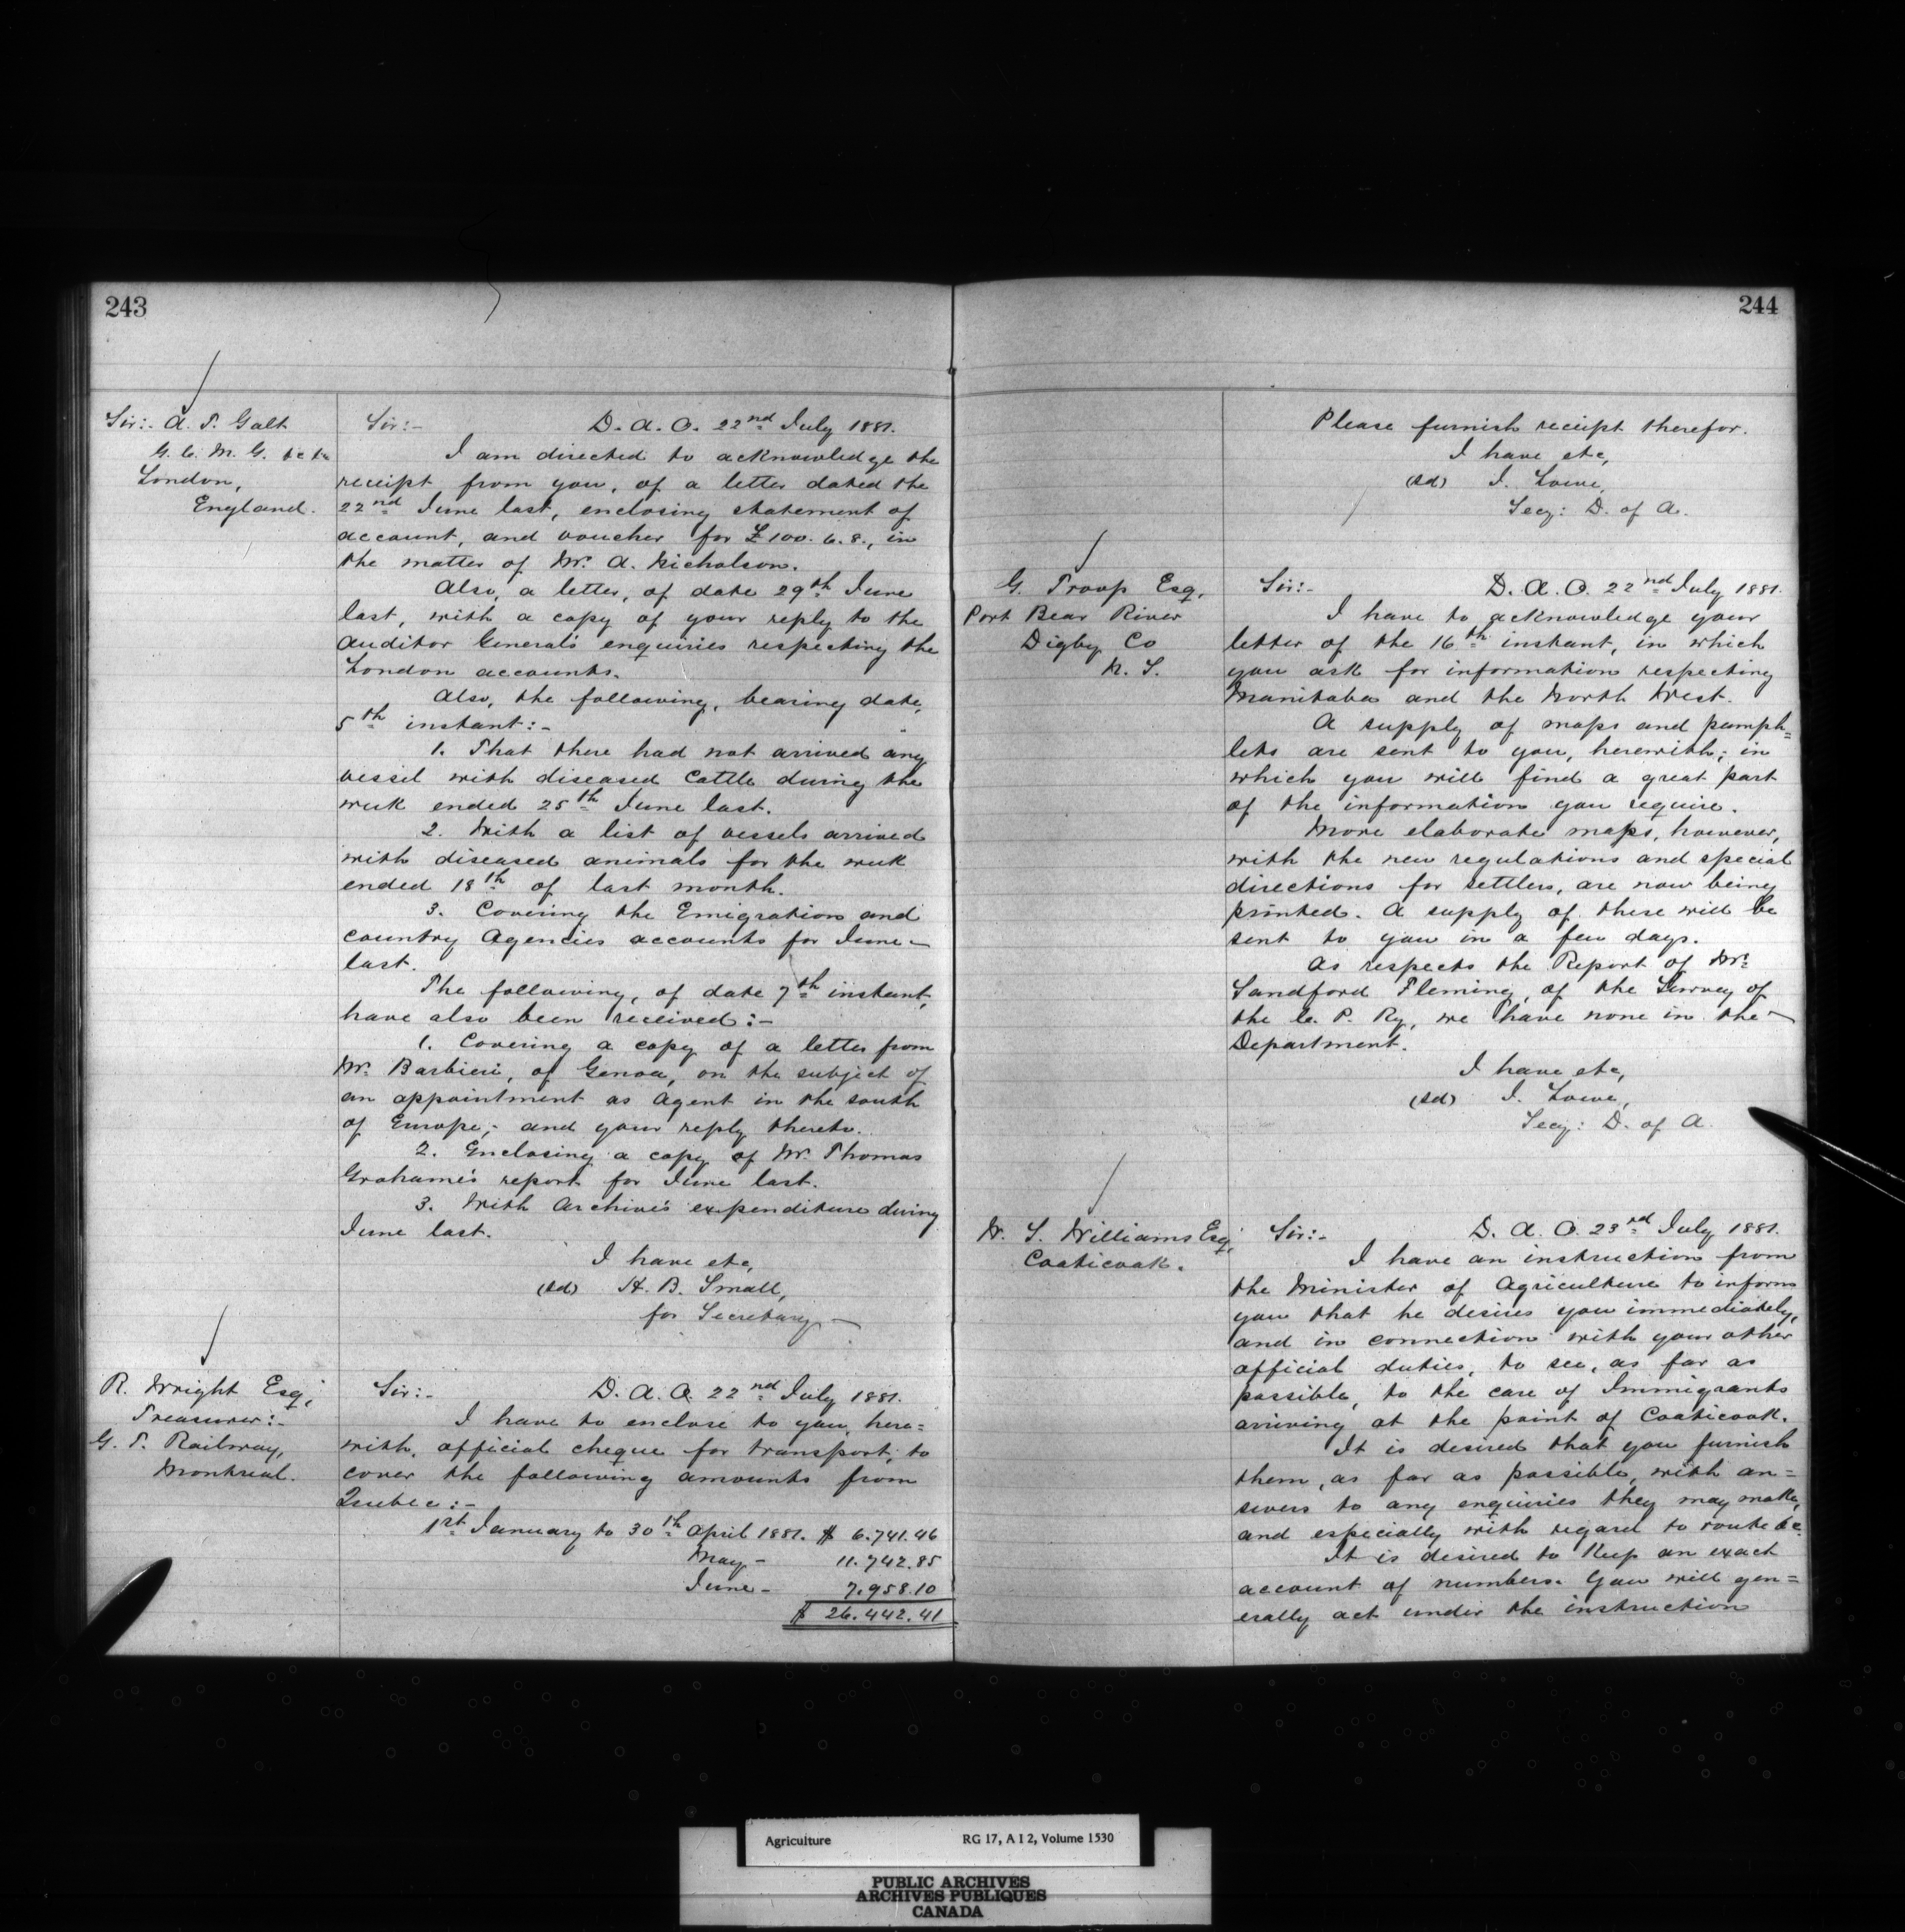 243
Sir:- A. T. Galt
G. C. M. G. &c &c
London,
England.
Sir:- D. A. O. 22nd July 1881.
I am directed to acknowledge the
receipt from you, of a letter dated the
22nd June last, enclosing statement of
account, and voucher for £100. 6. 8., in
the matter of Mr. A. Nicholson.
Also, a letter, of date 29th June
last, with a copy of your reply to the
Auditor General's enquiries respecting the
London accounts.
Also, the following, bearing date,
5th instant:-
1. That there had not arrived any
vessel with diseased Cattle during the
week ended 25th June last.
2. With a list of vessels arrived
with diseased animals for the week
ended 18th of last month.
3. Covering the Emigration and
country Agencies accounts for June
last.
The following, of date 7th instant,
have also been received:-
1. Covering a copy of a letter from
Mr. Barbieri, of Genoa, on the subject of
an appointment as Agent in the south
of Europe;- and your reply thereto.
2. Enclosing a copy of Mr. Thomas
Grahame's report for June last.
3. With Archives expenditure during
June last.
I have etc,
(sd) H. B. Small,
for Secretary
R. Wright Esq;
Treasurer:-
G. T. Railway,
Montreal.
Sir:- D. A. O. 22nd July 1881.
I have to enclose to you, here=
with, official cheque for transport, to
cover the following amounts from
Quebec:-
1st January to 30th April 1881. $ 6.741.46
May - 11.742.85
June - 7.958.10
$ 26.442.41
244
Please furnish receipt therefor.
I have etc,
(sd) J. Lowe,
Secy: D. of A.
G. Troop Esq,
Port Bear River
Digby Co
N. S.
Sir:- D. A. O. 22nd July 1881.
I have to acknowledge your
letter of the 16th instant, in which
you ask for information respecting
Manitoba and the North West.
A supply of maps and pamph=
lets are sent to you, herewith; in
which you will find a great part
of the information you require.
More elaborate maps, however,
with the new regulations and special
directions for settlers, are now being
printed. A supply of these will be
sent to you in a few days.
As respects the Report of Mr.
Sandford Fleming, of the Survey of
the C. P. Ry, we have none in the
Department.
I have etc,
(sd) J. Lowe,
Secy: D. of A.
W. S. Williams Esq,
Coaticook.
Sir:- D. A. O. 23rd July 1881.
I have an instruction from
the Minister of Agriculture to inform
you that he desires you immediately,
and in connection with your other
official duties, to see, as far as
possible, to the care of Immigrants
arriving at the point of Coaticook.
It is desired that you furnish
them, as far as possible, with an=
swers to any enquiries they may make,
and especially with regard to route &c.
It is desired to keep an exact
account of numbers. You will gen=
erally act under the instruction
Agriculture RG 17, A I 2, Volume 1530
PUBLIC ARCHIVES
ARCHIVES PUBLIQUES
CANADA